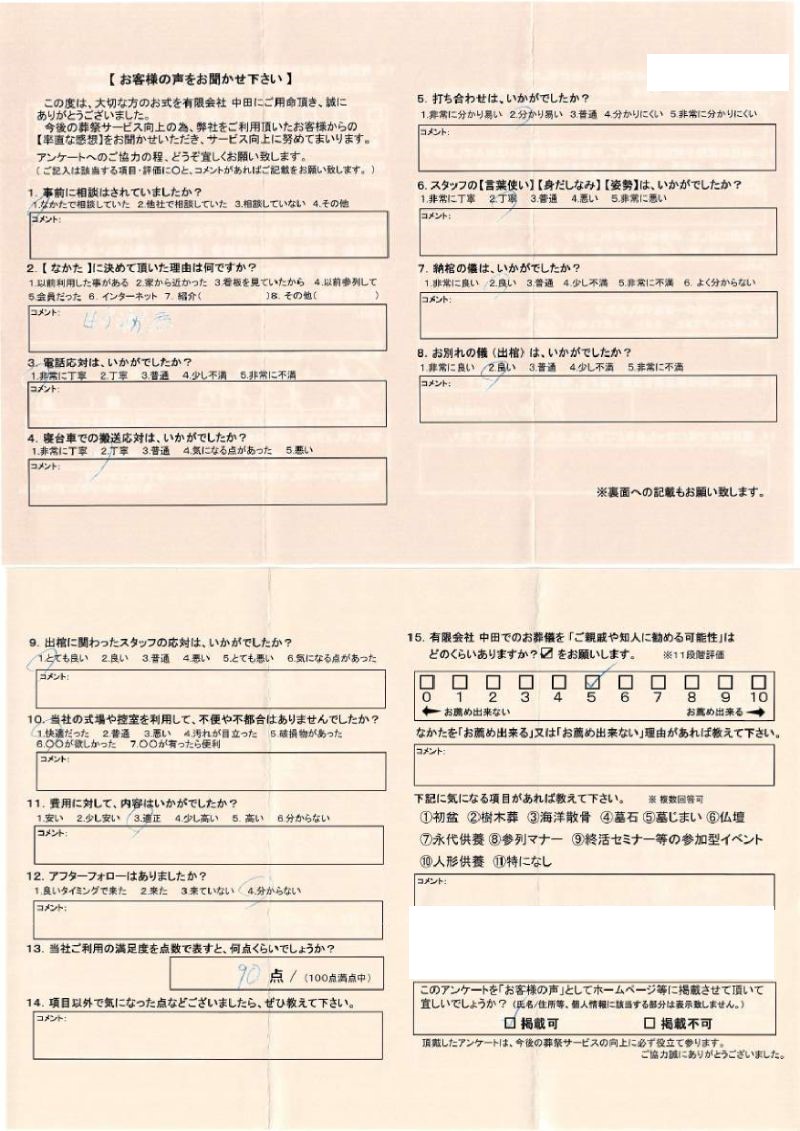 【 お客様の声をお聞かせ下さい 】
この度は、大切な方のお式を有限会社 中田にご用命頂き、誠に
ありがとうございました。
今後の葬祭サービス向上の為、弊社をご利用頂いたお客様からの
【率直な感想】をお聞かせいただき、サービス向上に努めてまいります。
アンケートへのご協力の程、どうぞ宜しくお願い致します。
(ご記入は該当する項目・評価に○と、コメントがあればご記載をお願い致します。)
1. 事前に相談はされていましたか?
1.なかたで相談していた 2.他社で相談していた 3.相談していない 4.その他
コメント:
2.【 なかた 】に決めて頂いた理由は何ですか?
1.以前利用した事がある 2.家から近かった 3.看板を見ていたから 4.以前参列して
5.会員だった 6. インターネット 7. 紹介( )8. その他( )
コメント:
3. 電話応対は、いかがでしたか?
1.非常に丁寧 2.丁寧 3.普通 4.少し不満 5.非常に不満
コメント:
4. 寝台車での搬送応対は、いかがでしたか?
1.非常に丁寧 2.丁寧 3.普通 4.気になる点があった 5.悪い
コメント:
5. 打ち合わせは、いかがでしたか?
1.非常に分かり易い 2.分かり易い 3.普通 4.分かりにくい 5.非常に分かりにくい
コメント:
6. スタッフの【言葉使い】【身だしなみ】【姿勢】は、いかがでしたか?
1.非常に丁寧 2.丁寧 3.普通 4.悪い 5.非常に悪い
コメント:
7. 納棺の儀は、いかがでしたか?
1.非常に良い 2.良い 3.普通 4.少し不満 5.非常に不満 6. よく分からない
コメント:
8. お別れの儀(出棺)は、いかがでしたか?
1.非常に良い 2.良い 3.普通 4.少し不満 5.非常に不満
コメント:
※裏面への記載もお願い致します。
9. 出棺に関わったスタッフの応対は、いかがでしたか?
1.とても良い 2.良い 3.普通 4.悪い 5.とても悪い 6.気になる点があった
コメント:
10. 当社の式場や控室を利用して、不便や不都合はありませんでしたか?
1.快適だった 2.普通 3.悪い 4.汚れが目立った 5.破損物があった
6.〇〇が欲しかった 7.〇〇が有ったら便利
コメント:
11. 費用に対して、内容はいかがでしたか?
1.安い 2.少し安い 3.適正 4.少し高い 5. 高い 6.分からない
コメント:
12. アフターフォローはありましたか?
1.良いタイミングで来た 2.来た 3.来ていない 4.分からない
コメント:
13. 当社ご利用の満足度を点数で表すと、何点くらいでしょうか?
90 点 / (100点満点中)
14. 項目以外で気になった点などございましたら、ぜひ教えて下さい。
コメント:
15. 有限会社 中田でのお葬儀を「ご親戚や知人に勧める可能性」は
どのくらいありますか?☑ をお願いします。 ※11段階評価
0 1 2 3 4 5 6 7 8 9 10
← お薦め出来ない お薦め出来る →
なかたを「お薦め出来る」又は「お薦め出来ない」理由があれば教えて下さい。
コメント:
下記に気になる項目があれば教えて下さい。 ※ 複数回答可
①初盆 ②樹木葬 ③海洋散骨 ④墓石 ⑤墓じまい ⑥仏壇
⑦永代供養 ⑧参列マナー ⑨終活セミナー等の参加型イベント
⑩人形供養 ⑪特になし
コメント:
このアンケートを「お客様の声」としてホームページ等に掲載させて頂いて
宜しいでしょうか?(氏名/住所等、個人情報に該当する部分は表示致しません。)
☑ 掲載可 □ 掲載不可
頂戴したアンケートは、今後の葬祭サービスの向上に必ず役立て参ります。
ご協力誠にありがとうございました。